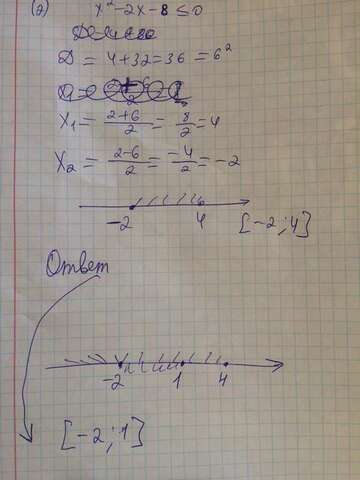 (2) x² - 2x - 8 ≤ 0
D = 4 + 32 = 36 = 6²
x₁ = (2+6)/2 = 8/2 = 4
x₂ = (2-6)/2 = -4/2 = -2
-2 4 [-2; 4]
Ответ
-2 1 4
[-2; 1]